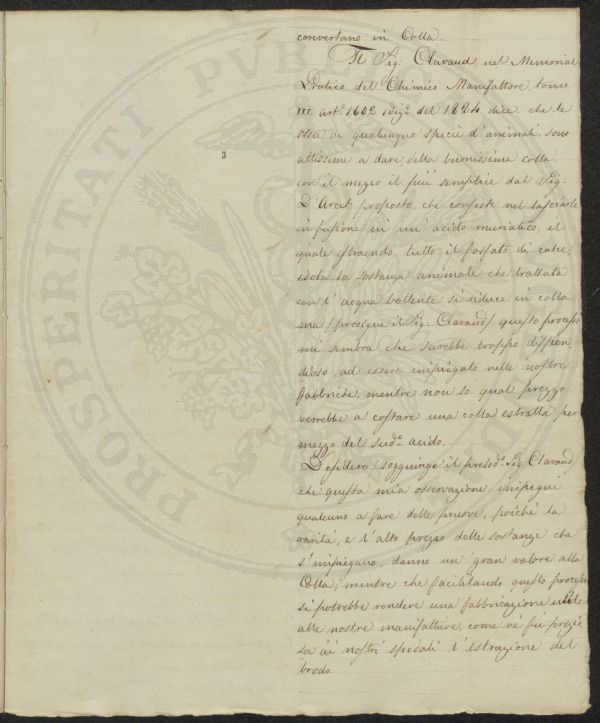 convertano in Colla.
Il Sig: Clavaud nel Memorial
Pratico del Chimico Manifattore, tomo
III art.º 1602 ediz.e del 1824 dice che le
ossa di qualunque specie d'animali sono
attissime a dare della buonissima colla
con il mezzo il più semplice dal Sig:
D'Arcet proposto, che consiste nel lasciarle
in fusione in un' acido muriatico, il
quale estraendo tutto il fosfato di calce,
isola la sostanza animale che trattata
con l' acqua bollente si riduce in colla
ma /prosegue il Sig: Clavaud/ questo process
mi sembra che sarebbe troppo dispen
dioso, ad essere impiegato nelle nostre
fabbriche, mentre non so qual prezzo
verrebbe a costare una colla estratta per
mezzo del sud.º acido.
Desidero /soggiunge il prelod.º Sig Clavaud/
che questa mia osservazione impegni
qualcuno a fare delle pruove, poiché la
rarità, e l'alto prezzo delle sostanze che
s'impiegano, danno un' gran valore alla
Colla; mentre che facilitando questo process
si potrebbe rendere una fabbricazione utile
alle nostre manifatture, come né fu prezio
sa ai nostri spedali l'estrazione del
brodo.
3
PROSPERITATI PUBLI